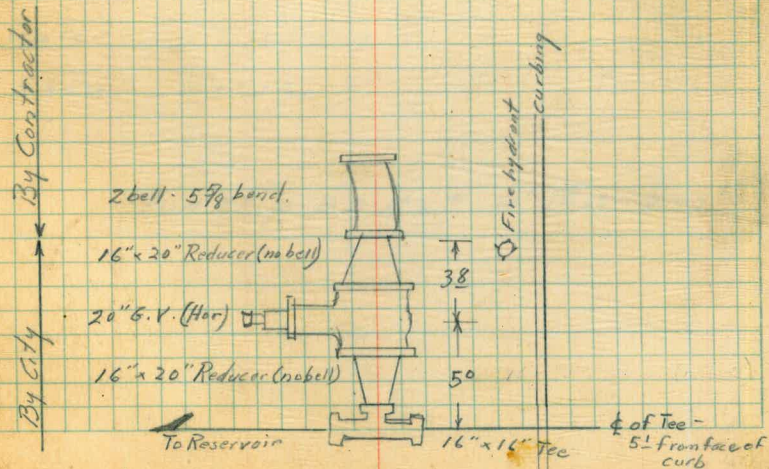 By Contractor
By City
2 bell - 5 5/8 bend.
16" x 20" Reducer (no bell)
20" G.V. (Hor)
16" x 20" Reducer (no bell)
To Reservoir
38
5⁰
16" x 16" Tee
Firehydrant
curbing
℄ of Tee -
5' from face of
curb